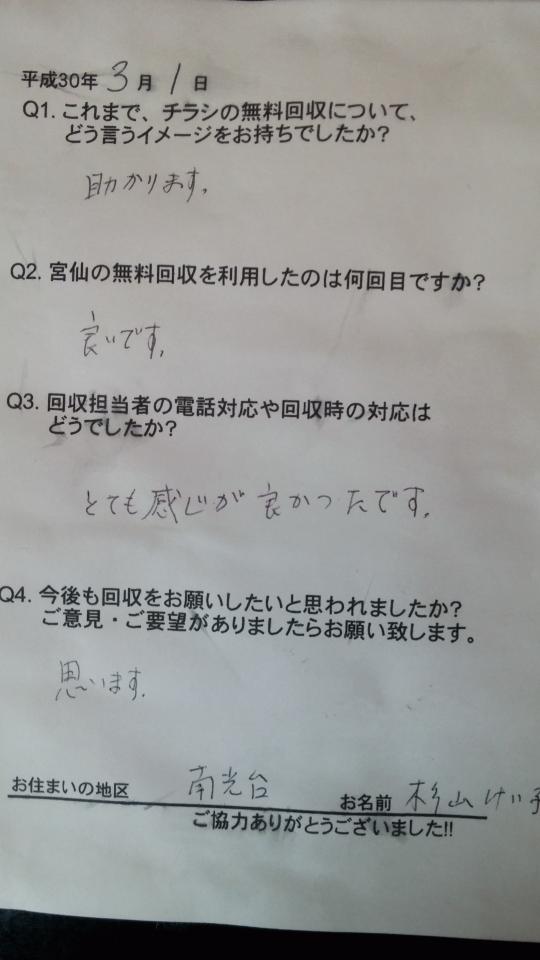 平成30年 3月 1日
Q1. これまで、チラシの無料回収について、
どう言うイメージをお持ちでしたか?
助かります。
Q2. 宮仙の無料回収を利用したのは何回目ですか?
良いです。
Q3. 回収担当者の電話対応や回収時の対応は
どうでしたか?
とても感じが良かったです。
Q4. 今後も回収をお願いしたいと思われましたか?
ご意見・ご要望がありましたらお願い致します。
思います。
お住まいの地区 南光台 お名前 杉山けい子
ご協力ありがとうございました!!